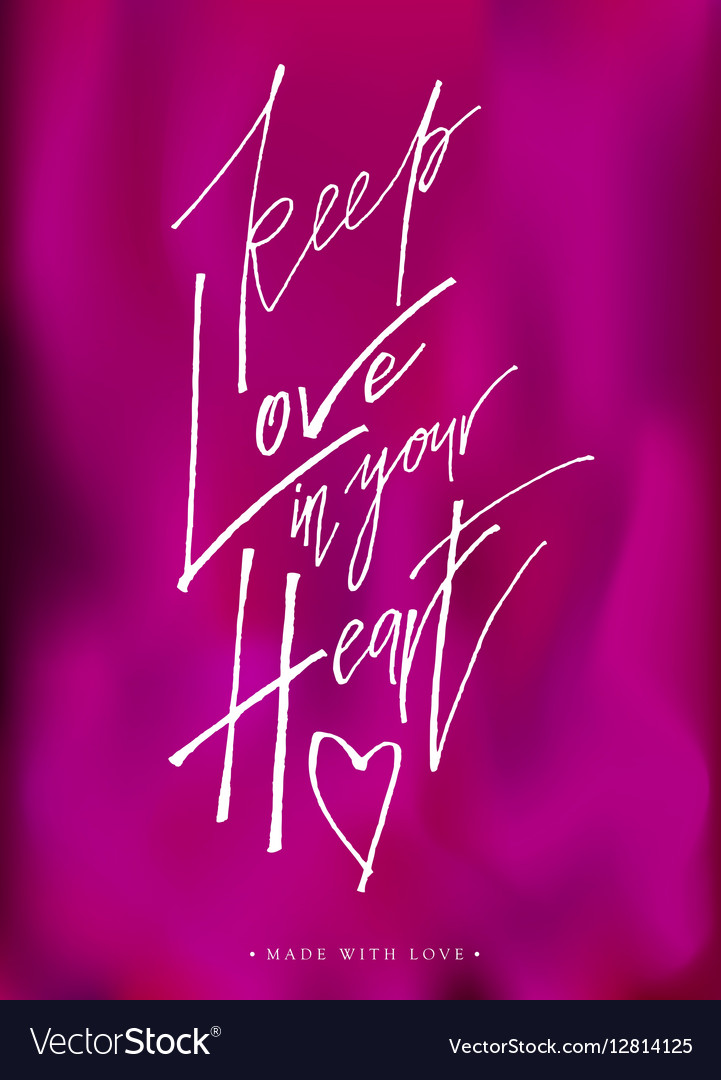 keep
Love
in your
Heart
• MADE WITH LOVE •
VectorStock®
VectorStock.com/12814125